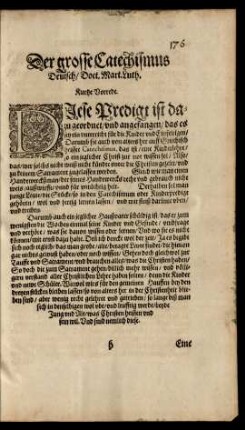 176
Der grosse Catechismus
Deutsch / Doct. Mart. Luth.
Kurtze Vorrede.
DIese Predigt ist da-
zu geordnet / vnd angefangen / das es
sey ein vnterricht für die Kinder vnd Einfeltigen /
Darumb sie auch von alters her auff Griechisch
heisset Catechismus / das ist / eine Kinderlehre /
so ein jeglicher Christ zur not wissen sol / Also /
das / wer solchs nicht weis / nicht kündte vnter die Christen gezelet / vnd
zu keinem Sacrament zugelassen werden. Gleich wie man einen
Handwercksman / der seines Handwercks recht vnd gebrauch nicht
weis / auswirffet / vnd für vntüchtig helt. Derhalben sol man
junge Leute die Stücke / so in den Catechismum oder Kinderpredigt
gehören / wol vnd fertig lernen lassen / vnd mit fleis darinne vben /
vnd treiben.
Darumb auch ein jeglicher Hausvater schüldig ist / das er zum
wenigsten die Wochen einmal seine Kinder vnd Gesinde / vmbfrage
vnd verhöre / was sie dauon wissen oder lernen / Vnd wo sie es nicht
können / mit ernst dazu halte. Denn ich dencke wol der zeit / Ja es begibt
sich noch teglich / das man grobe / alte betagte Leute findet / die hieuon
gar nichts gewust haben oder noch wissen / Gehen doch gleichwol zur
Tauffe vnd Sacrament / vnd brauchen alles / was die Christen haben /
So doch die zum Sacrament gehen / billich mehr wissen / vnd völli-
gern verstand aller Christlichen Lehre haben solten / denn die Kinder
vnd newe Schüler. Wiewol wirs für den gemeinen Hauffen bey den
dreyen stücken bleiben lassen / so von alters her in der Christenheit blie-
ben sind / aber wenig recht geleret vnd getrieben / so lange bis man
sich in denselbigen wol vbe / vnd leufftig werde / beyde
Jung vnd Alt / was Christen heissen vnd
sein wil. Vnd sind nemlich diese.
h
Eine